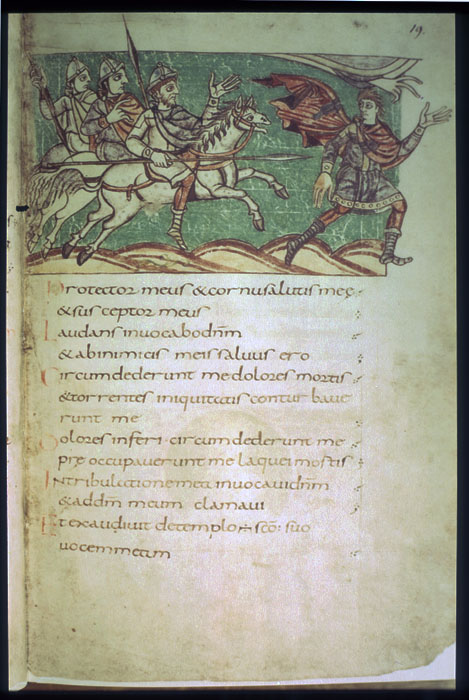 19.
Protector meus & cornusalutis meę
& susceptor meus
Laudans invocabo dnm
& abinimicis meis salvus ero
Circumdederunt me dolores mortis
& torrentes iniquitatis conturbave
runt me
Dolores inferi circumdederunt me
pre occupaverunt me laquei mortis
Intribulatione mea invocavi dnm
& addm meum clamavi
Et exaudivit de templo sco suo
vocem meam